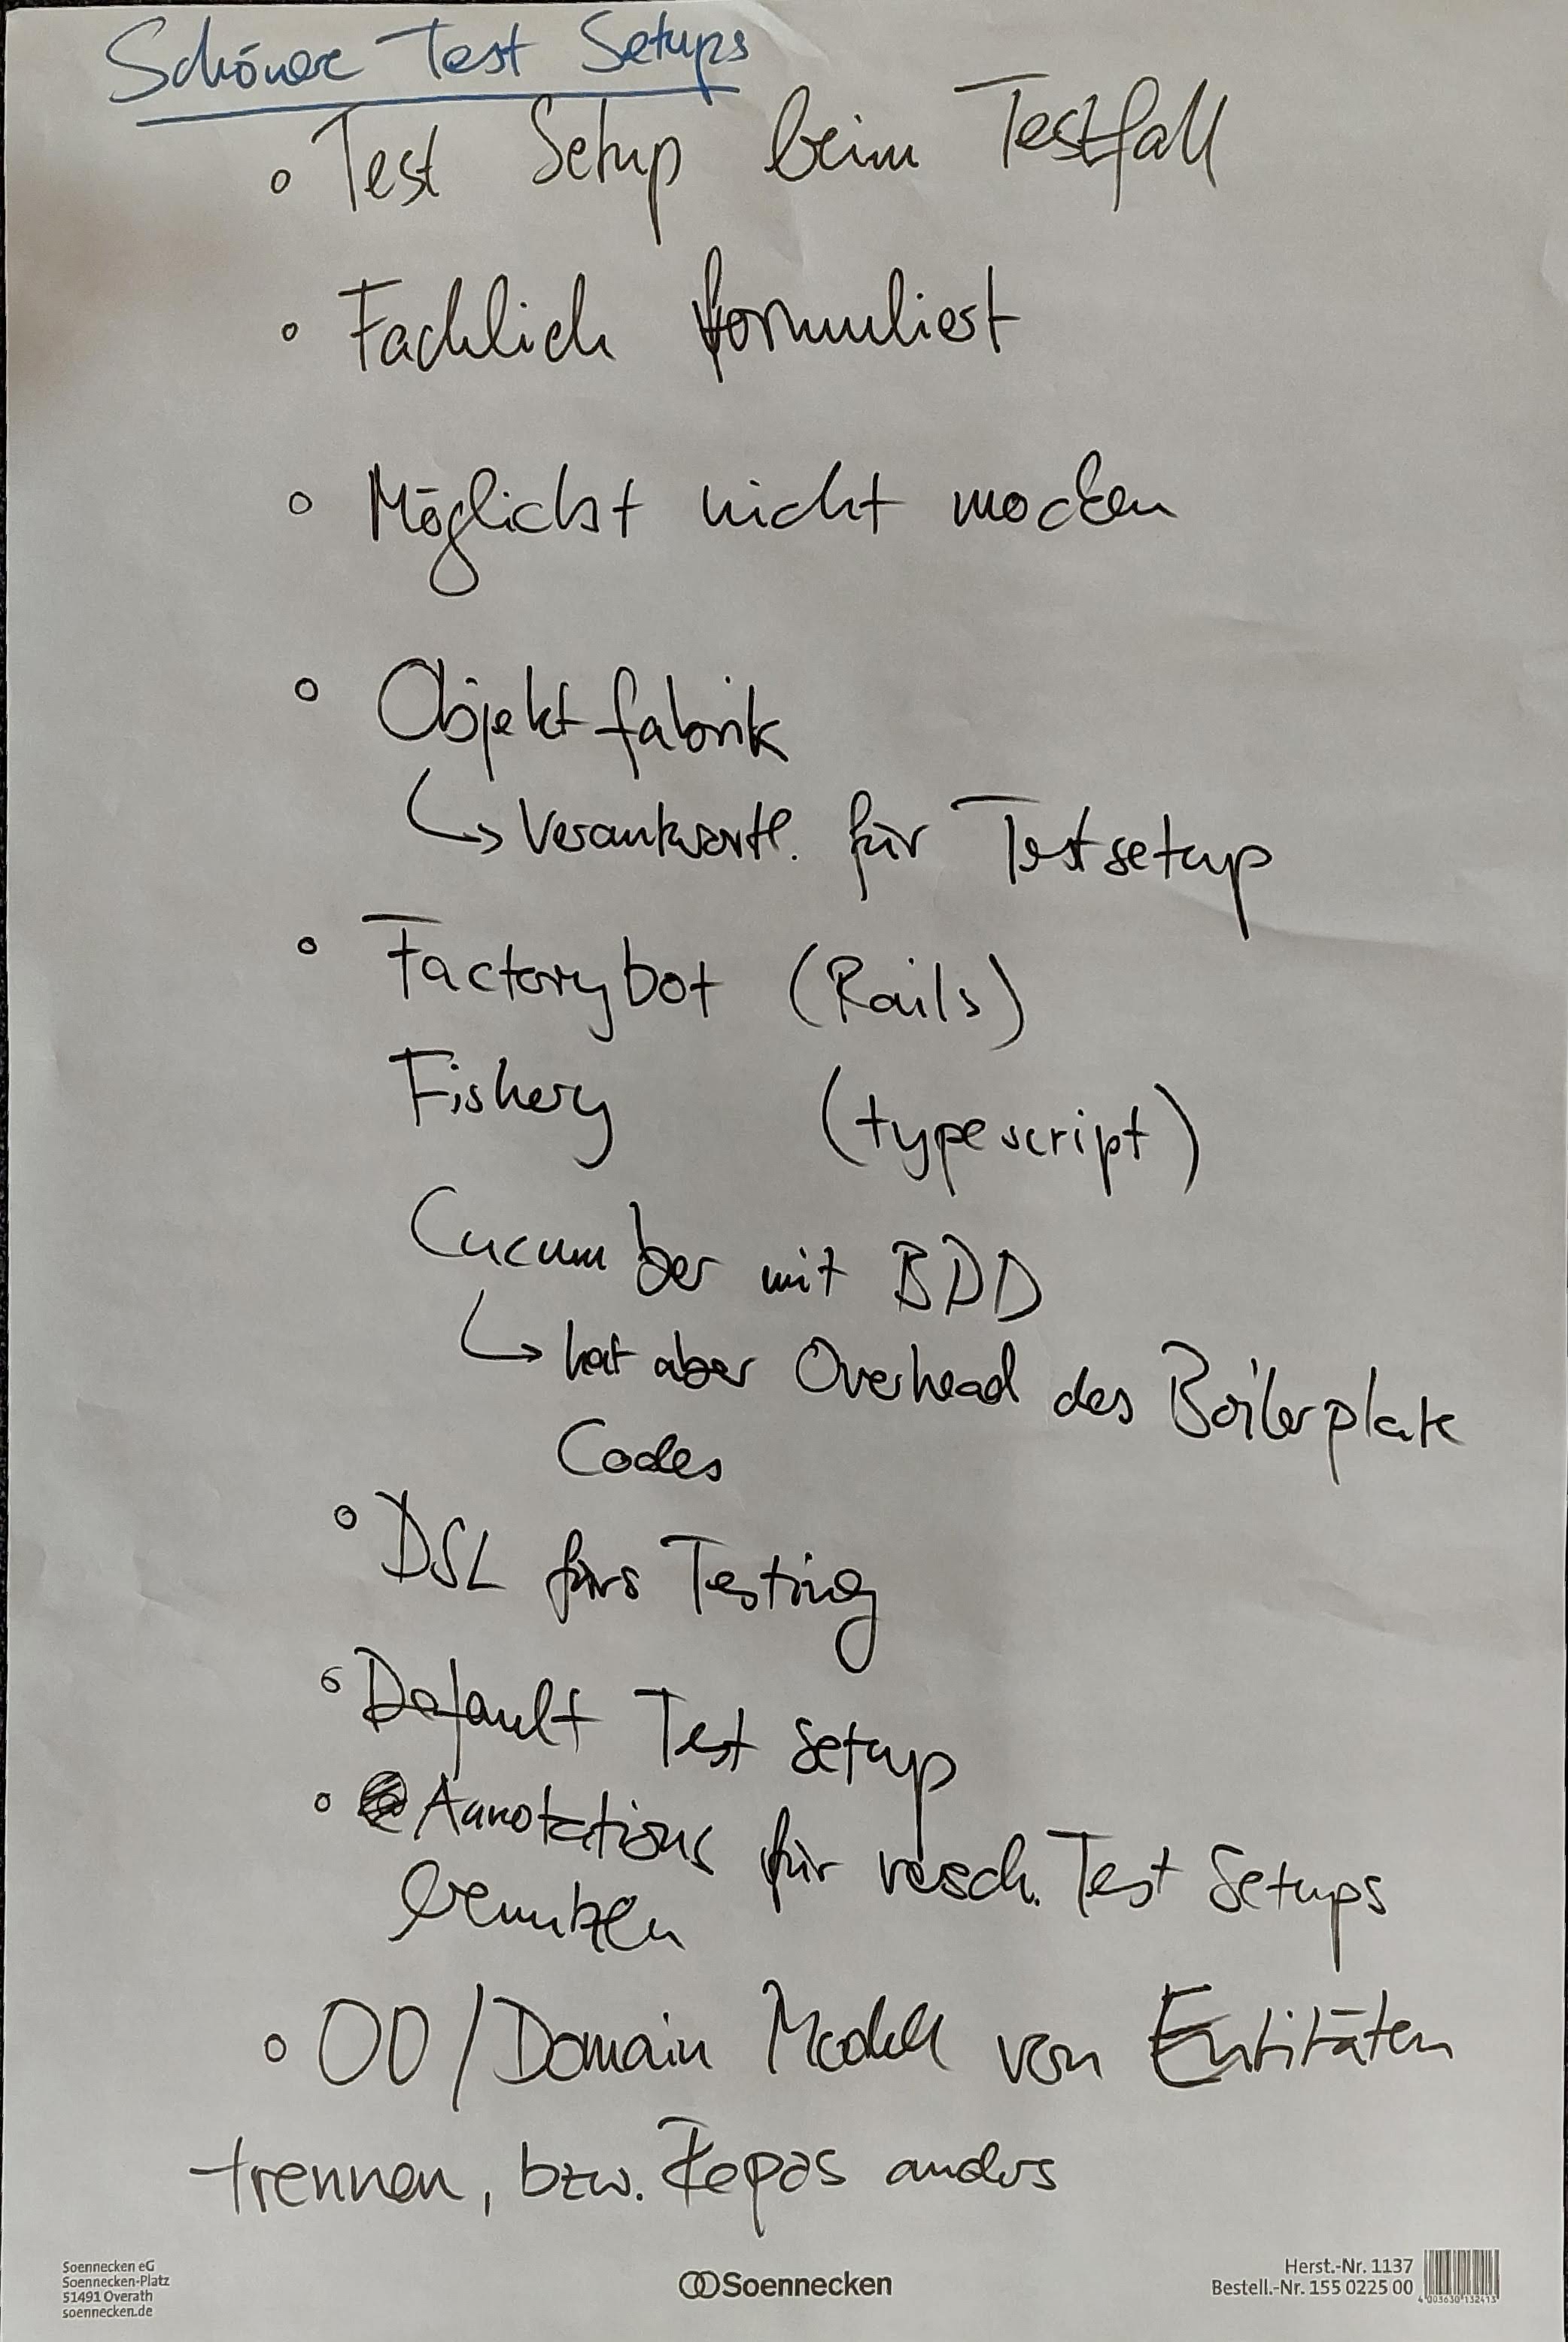 Schöner Test Setups
° Test Setup beim Testfall
° Fachlich formuliert
° Möglichst nicht mocken
° Objektfabrik
↳ Verantwortl. für Testsetup
° Factorybot (Rails)
Fishery (typescript)
Cucumber mit BDD
↳ hat aber Overhead des Boilerplate
Codes
° DSL fürs Testing
° Default Test Setup
° Annotations für versch. Test Setups
benutzen
° OO/Domain Modell von Entitäten
trennen, bzw. Repos anders
Soennecken eG
Soennecken-Platz
51491 Overath
soennecken.de
Soennecken
Herst.-Nr. 1137
Bestell.-Nr. 155 0225 00
4 003630 132413